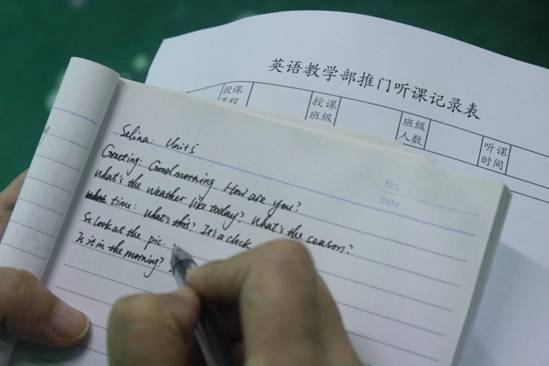 英语教学部推门听课记录表
授课
授课
班级
班级
人数
听课
时间
NO.
Date
Selina: Unit 5
Greeting: Good morning How are you?
What's the weather like today? What's the season?
time: What's this? It's a clock
Su look at the pic.
Is it in the morning?